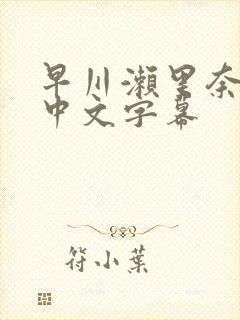 早川瀬里奈
中文字幕
符小葉